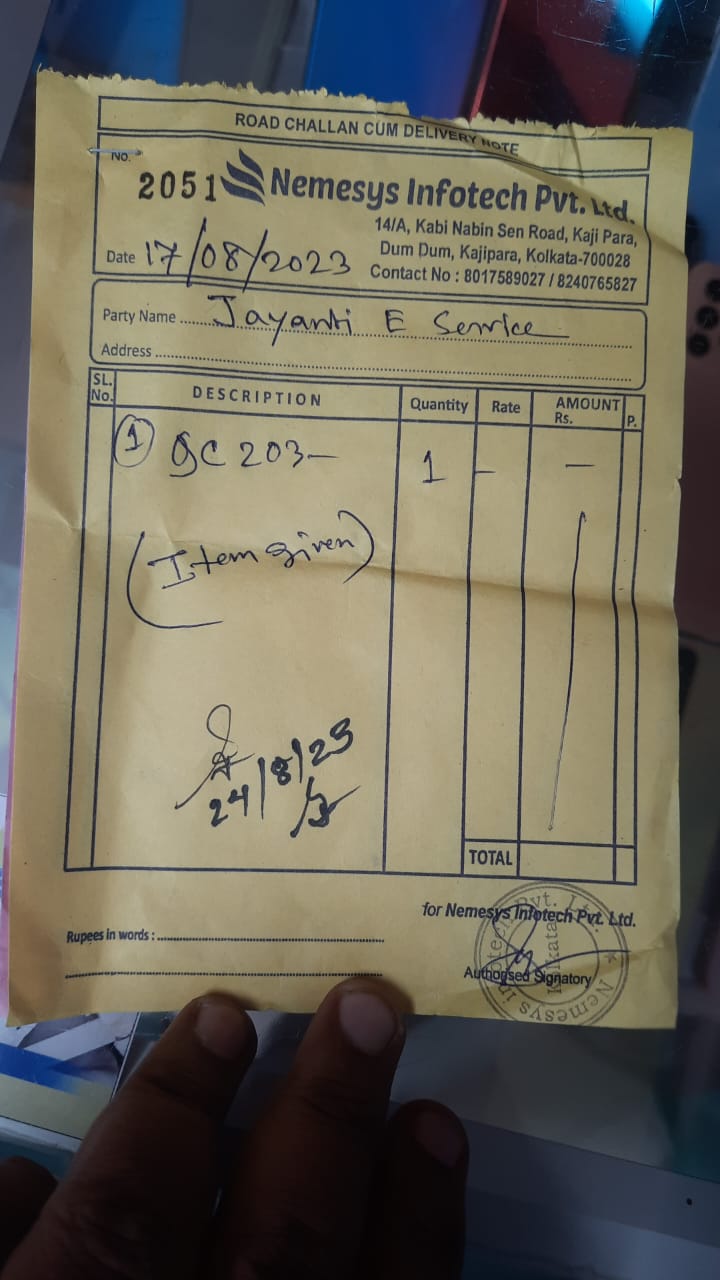 ROAD CHALLAN CUM DELIVERY NOTE
No.
2051
Nemesys Infotech Pvt. Ltd.
14/A, Kabi Nabin Sen Road, Kaji Para,
Dum Dum, Kajipara, Kolkata-700028
Contact No : 8017589027 / 8240765827
Date 17/08/2023
Party Name Jayanti E Service
Address
SL. No. DESCRIPTION Quantity Rate AMOUNT Rs. P.
1 GC 203- 1 - -
(Item given)
24/8/23
TOTAL
for Nemesys Infotech Pvt. Ltd.
Rupees in words :
Authorised Signatory
Nemesys Infotech Pvt. Ltd.
Kolkata